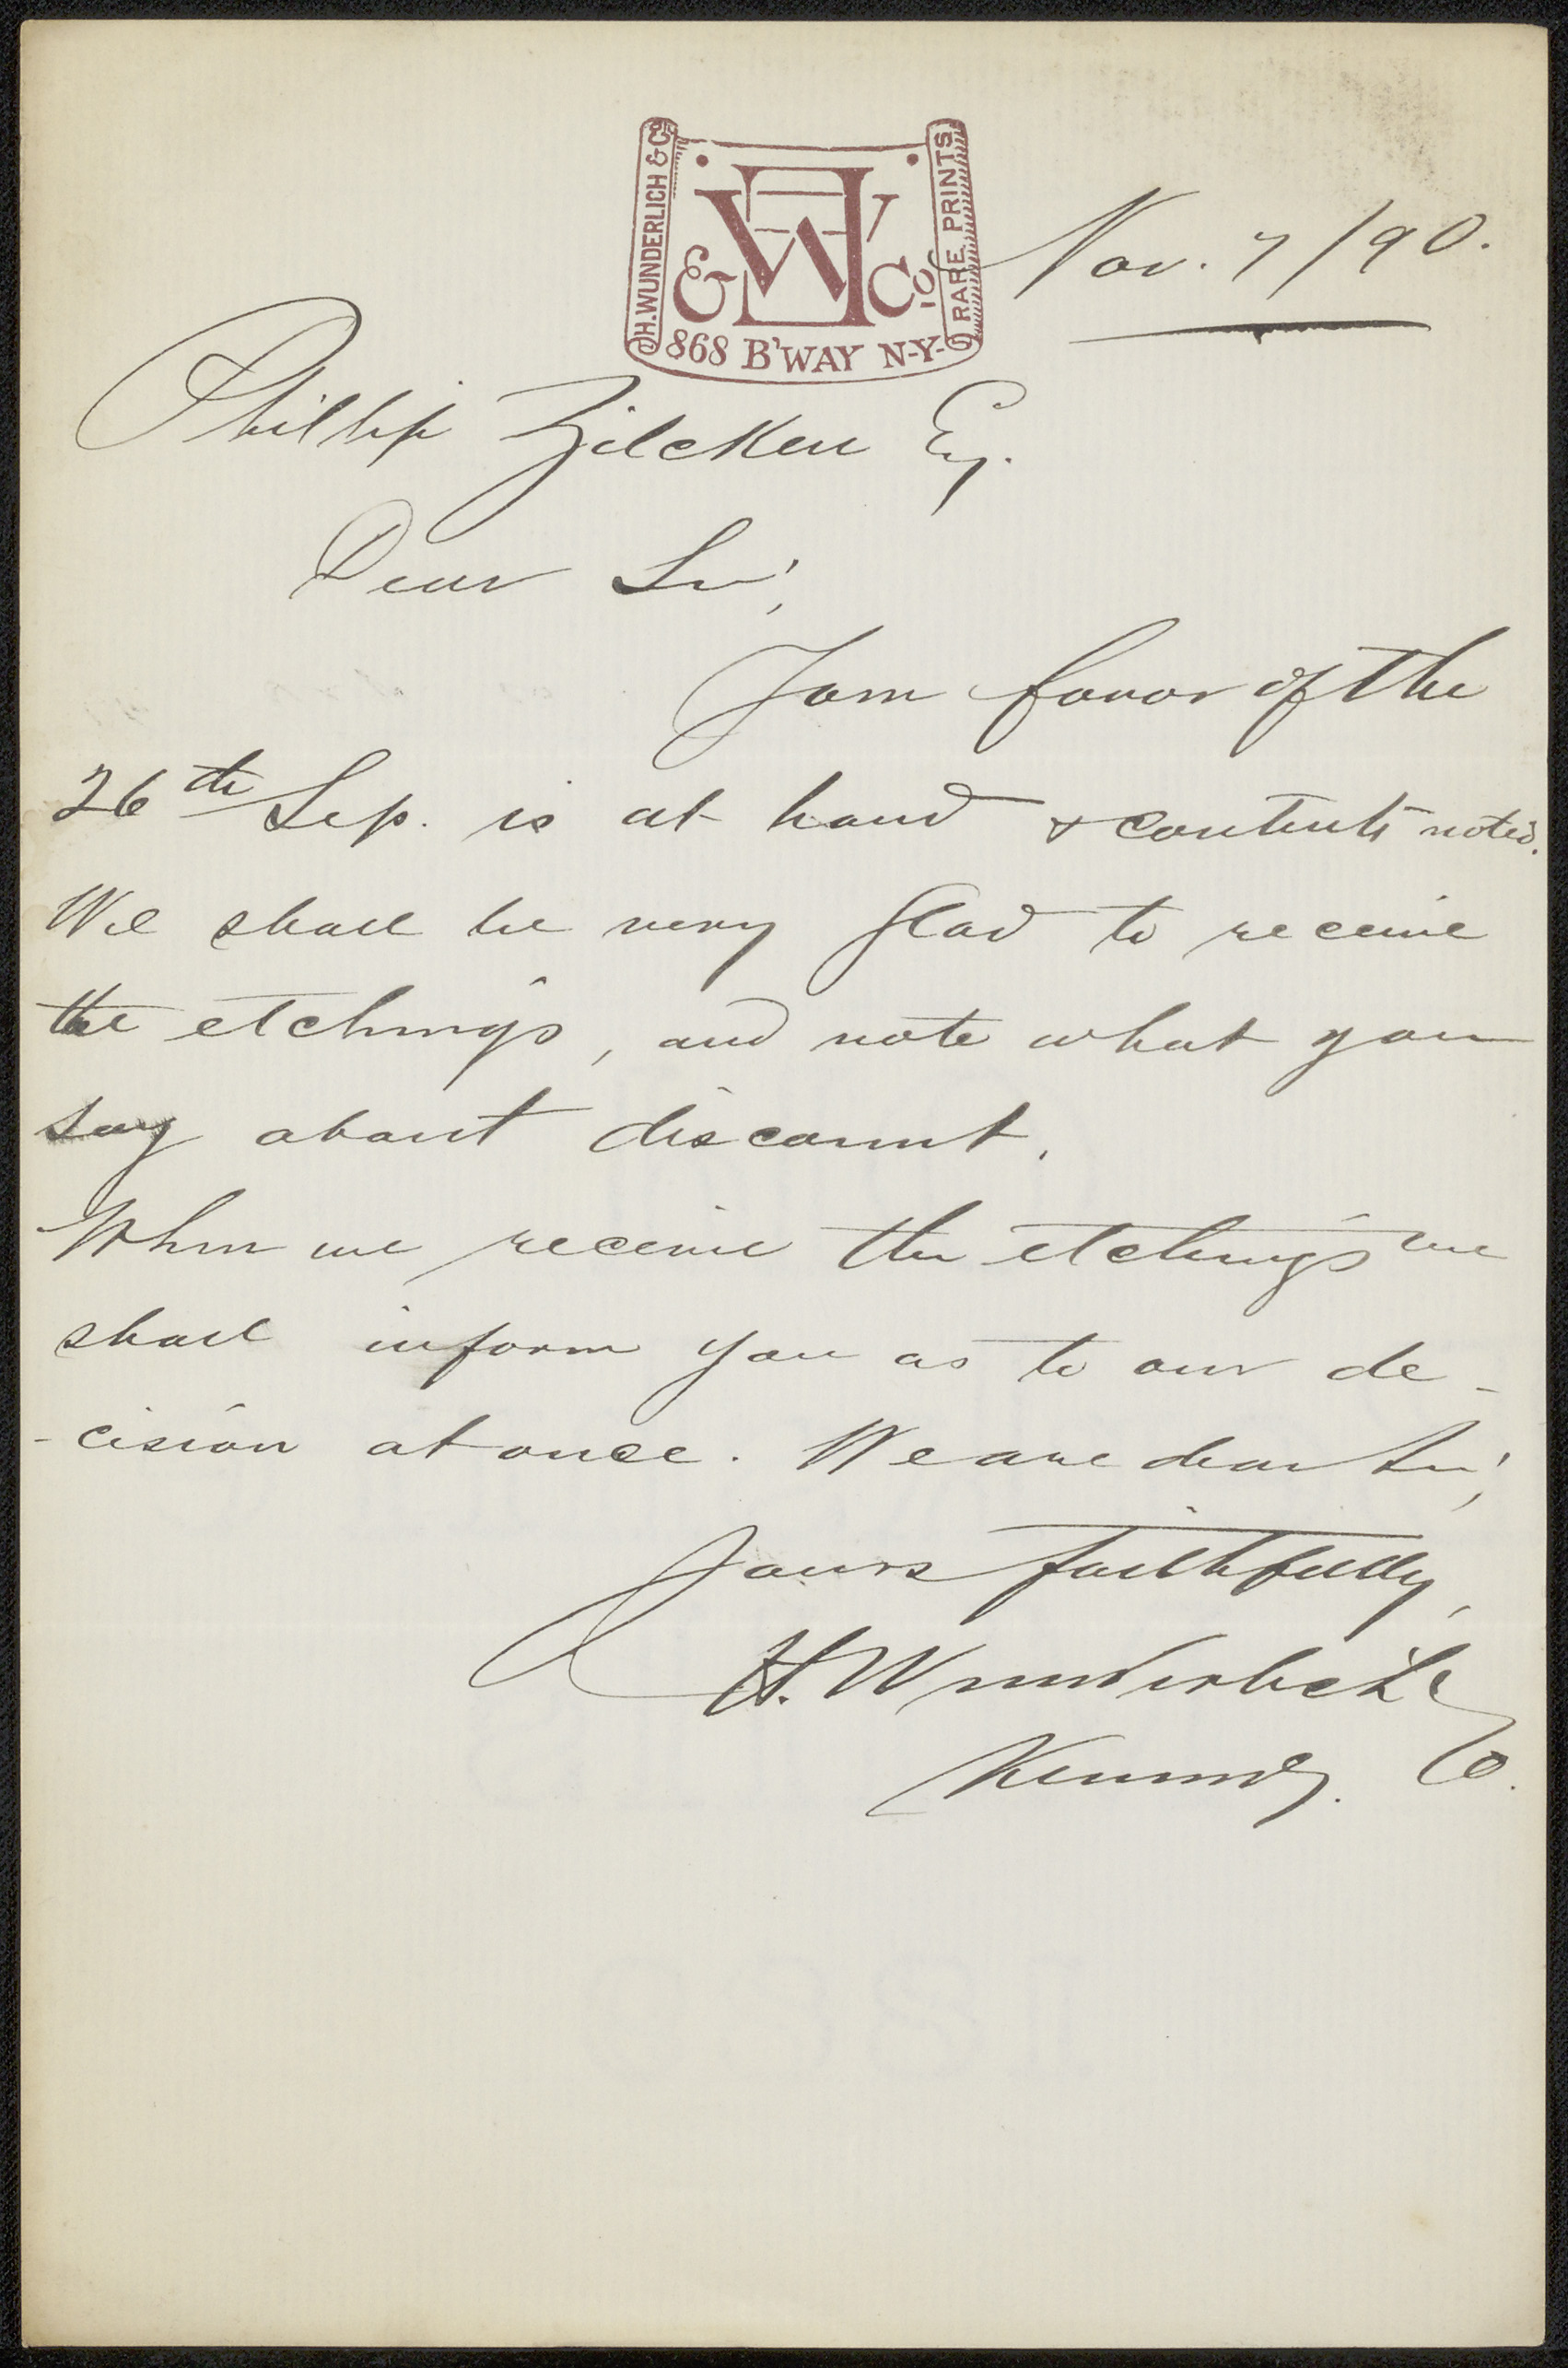 H. WUNDERLICH & Co
HW & Co
RARE PRINTS
868 B'WAY N-Y-
Nov. 7/90.
Phillip Zilcken Esq.
Dear Sir,
Your favor of the
26th Sep. is at hand & contents noted.
We shall be very glad to receive
the etchings, and note what you
say about discount.
When we receive the etchings we
shall inform you as to our de-
-cision at once. We are dear Sir,
Yours faithfully,
H. Wunderlich &
Kennedy. Co.